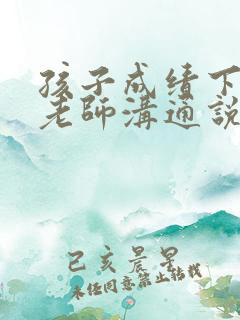 孩子成績下
老師溝通說
己亥晨星
未经同意禁止转载